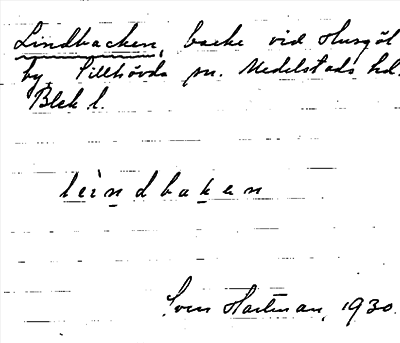 Lindbacken, backe vid Husgöl
by Tillhövda sn. Medelstads hd.
Blek l.
leindbaken
Sven Hartman, 1930.